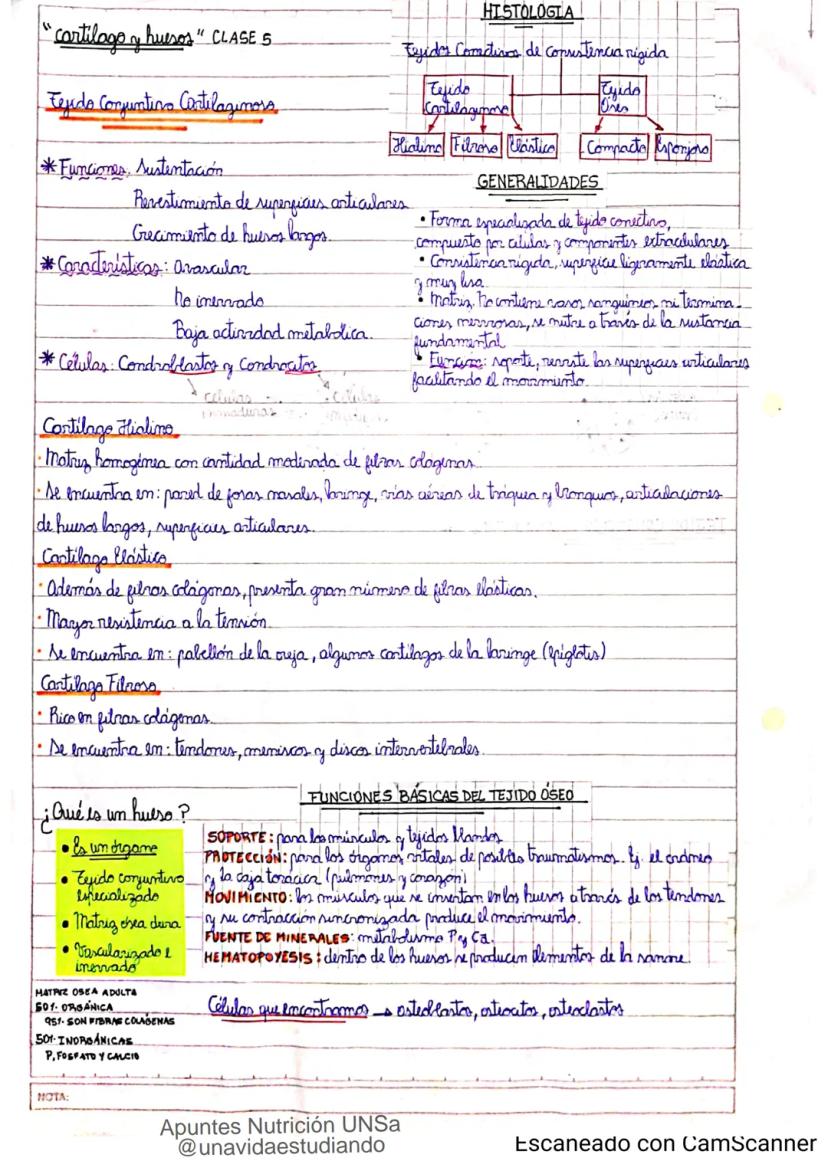 "cartílago y huesos" CLASE 5
Tejido Conjuntivo Cartilaginoso
* Funciones: Sustentación
Revestimiento de superficies articulares
Crecimiento de huesos largos.
* Características: Avascular
No inervado
Baja actividad metabólica.
* Células: Condroblastos y Condrocitos
células
células
HISTOLOGÍA
Tejidos Conectivos de consistencia rígida
Tejido Cartilaginoso
Tejido Óseo
Hialino
Fibroso
Elástico
Compacto
Esponjoso
GENERALIDADES
• Forma especializada de tejido conectivo,
compuesto por células y componentes extracelulares
• Consistencia rígida, superficie ligeramente elástica
y muy lisa
• Matriz: No contiene vasos sanguíneos ni termina-
ciones nerviosas, se nutre a través de la sustancia
fundamental
• Función: soporte, reviste las superficies articulares
facilitando el movimiento.
Cartílago Hialino
• Matriz homogénea con cantidad moderada de fibras colágenas
• Se encuentra en: pared de fosas nasales, laringe, vías aéreas de tráquea y bronquios, articulaciones
de huesos largos, superficies articulares.
Cartílago Elástico
• Además de fibras colágenas, presenta gran número de fibras elásticas.
• Mayor resistencia a la tensión
• Se encuentra en: pabellón de la oreja, algunos cartílagos de la laringe (epiglotis)
Cartílago Fibroso
• Rico en fibras colágenas
• Se encuentra en: tendones, meniscos y discos intervertebrales
¿Qué es un hueso?
• Es un órgano
• Tejido conjuntivo
especializado
• Matriz ósea dura
• Vascularizado e
inervado
FUNCIONES BÁSICAS DEL TEJIDO ÓSEO
SOPORTE: para los músculos y tejidos blandos
PROTECCIÓN: para los órganos vitales de posibles traumatismos. Ej. el cráneo
y la caja torácica (pulmones y corazón)
MOVIMIENTO: los músculos que se insertan en los huesos a través de los tendones
y su contracción sincronizada produce el movimiento.
FUENTE DE MINERALES: metabolismo P y Ca.
HEMATOPOYESIS: dentro de los huesos se producen elementos de la sangre
MATRIZ OSEA ADULTA
50% ORGÁNICA
95% SON FIBRAS COLÁGENAS
50% INORGÁNICAS
P, FOSFATO Y CALCIO
Células que encontramos → osteoblastos, osteocitos, osteoclastos
NOTA:
Apuntes Nutrición UNSa
@unavidaestudiando
Escaneado con CamScanner